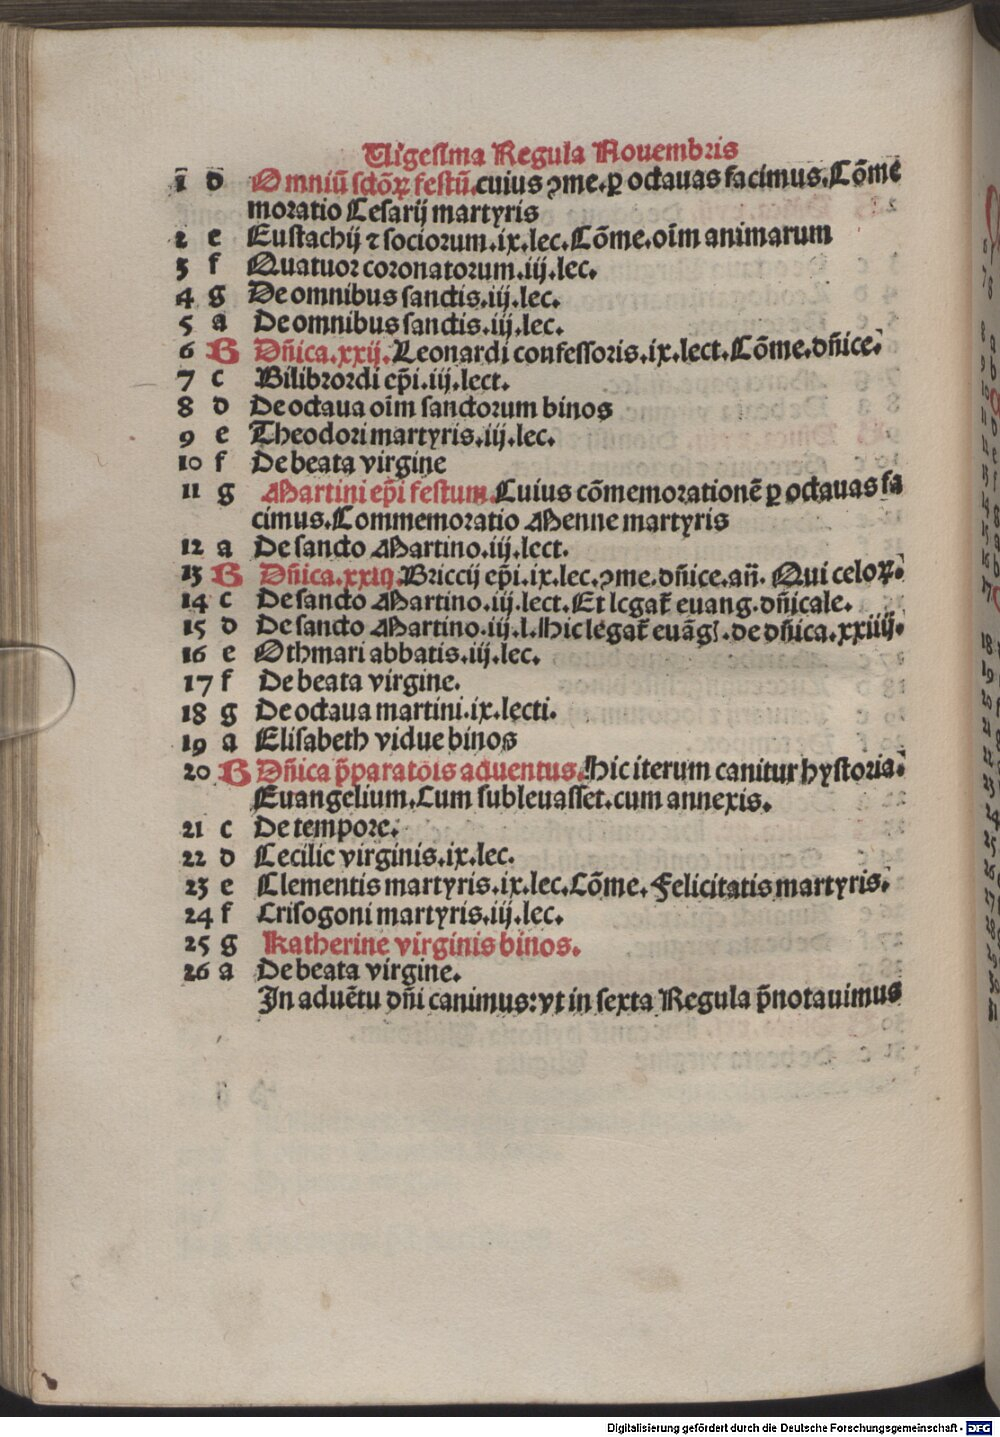 Uigesima Regula Nouembris
1 d Omniū sctōꝝ festū.cuius ꝯme.ꝑ octauas facimus.Cōme
moratio Cesarij martyris
2 e Eustachij ⁊ sociorum.ix.lec.Cōme.oīm animarum
3 f Quatuor coronatorum.iij.lec.
4 g De omnibus sanctis.iij.lec.
5 a De omnibus sanctis.iij.lec.
6 B Dñica.xxij.Leonardi confessoris.ix.lect.Cōme.dñice.
7 c Bilibrordi ep̄i.iij.lect.
8 d De octaua oīm sanctorum binos
9 e Theodori martyris.iij.lec.
10 f De beata virgine
11 g Martini ep̄i festum.Cuius cōmemorationē ꝑ octauas fa
cimus.Commemoratio Menne martyris
12 a De sancto Martino.iij.lect.
13 B Dñica.xxiij.Briccij ep̄i.ix.lec.ꝯme.dñice.añ. Qui celoꝝ.
14 c De sancto Martino.iij.lect.Et legat̄ euang.dñicale.
15 d De sancto Martino.iij.l.Hic legat̄ euāgl.de dñica.xxiiij.
16 e Othmari abbatis.iij.lec.
17 f De beata virgine.
18 g De octaua martini.ix.lecti.
19 a Elisabeth vidue binos
20 B Dñica p̄paratōis aduentus.Hic iterum canitur hystoria.
Euangelium.Cum subleuasset.cum annexis.
21 c De tempore.
22 d Cecilie virginis.ix.lec.
23 e Clementis martyris.ix.lec.Cōme.Felicitatis martyris.
24 f Crisogoni martyris.iij.lec.
25 g Katherine virginis binos.
26 a De beata virgine.
In aduētu dñi canimus:vt in sexta Regula p̄notauimus
Digitalisierung gefördert durch die Deutsche Forschungsgemeinschaft - DFG